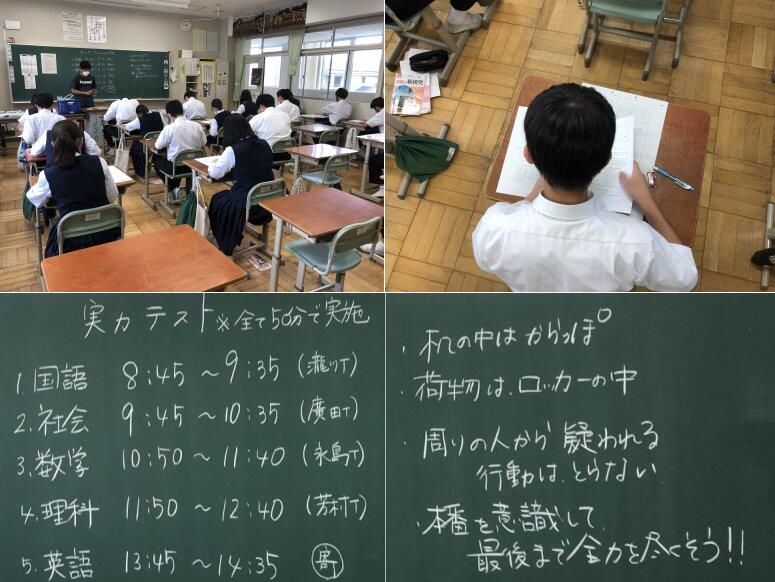 実力テスト ※全て50分で実施
1.国語 8:45～9:35 (瀧川T)
2.社会 9:45～10:35 (廣田T)
3.数学 10:50～11:40 (永島T)
4.理科 11:50～12:40 (芳村T)
5.英語 13:45～14:35
・机の中はからっぽ
・荷物は、ロッカーの中
・周りの人から疑われる
行動は、とらない
・本番を意識して
最後まで全力を尽くそう!!